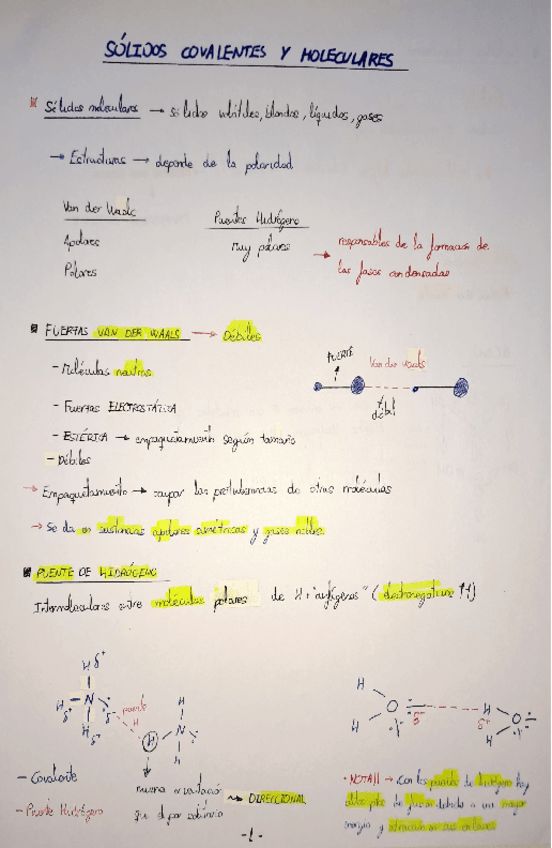 SÓLIDOS COVALENTES Y MOLECULARES
Sólidos moleculares → sólidos volátiles, blandos, líquidos, gases
→ Estructuras → depende de la polaridad
Van der Waals
Puentes Hidrógeno
Apolares
muy polares
Polares
→ responsables de la formación de
las fases condensadas
FUERZAS VAN DER WAALS → Débiles
- Moléculas neutras
FUERTE
Van der Waals
débil
- Fuerzas ELECTROSTÁTICA
- ESTÉRICA → empaquetamiento según tamaño
- Débiles
→ Empaquetamiento → ocupar las protuberancias de otras moléculas
→ Se da en sustancias apolares simétricas y gases nobles.
PUENTE DE HIDRÓGENO
Intermoleculares entre moléculas polares de H + "antígenos" (electronegativos ↑↑)
H δ+
H N
δ+
H δ+
puente
H
H
H N
H
H
O δ-
H
H
δ+
O
H
- Covalente
- Puente Hidrógeno
misma orientación
que el par solitario
→ DIRECCIONAL
· NOTA!! → Con los puentes de hidrógeno hay
altos ptos de fusión debido a una mayor
energía y atracción en sus enlaces
-1-